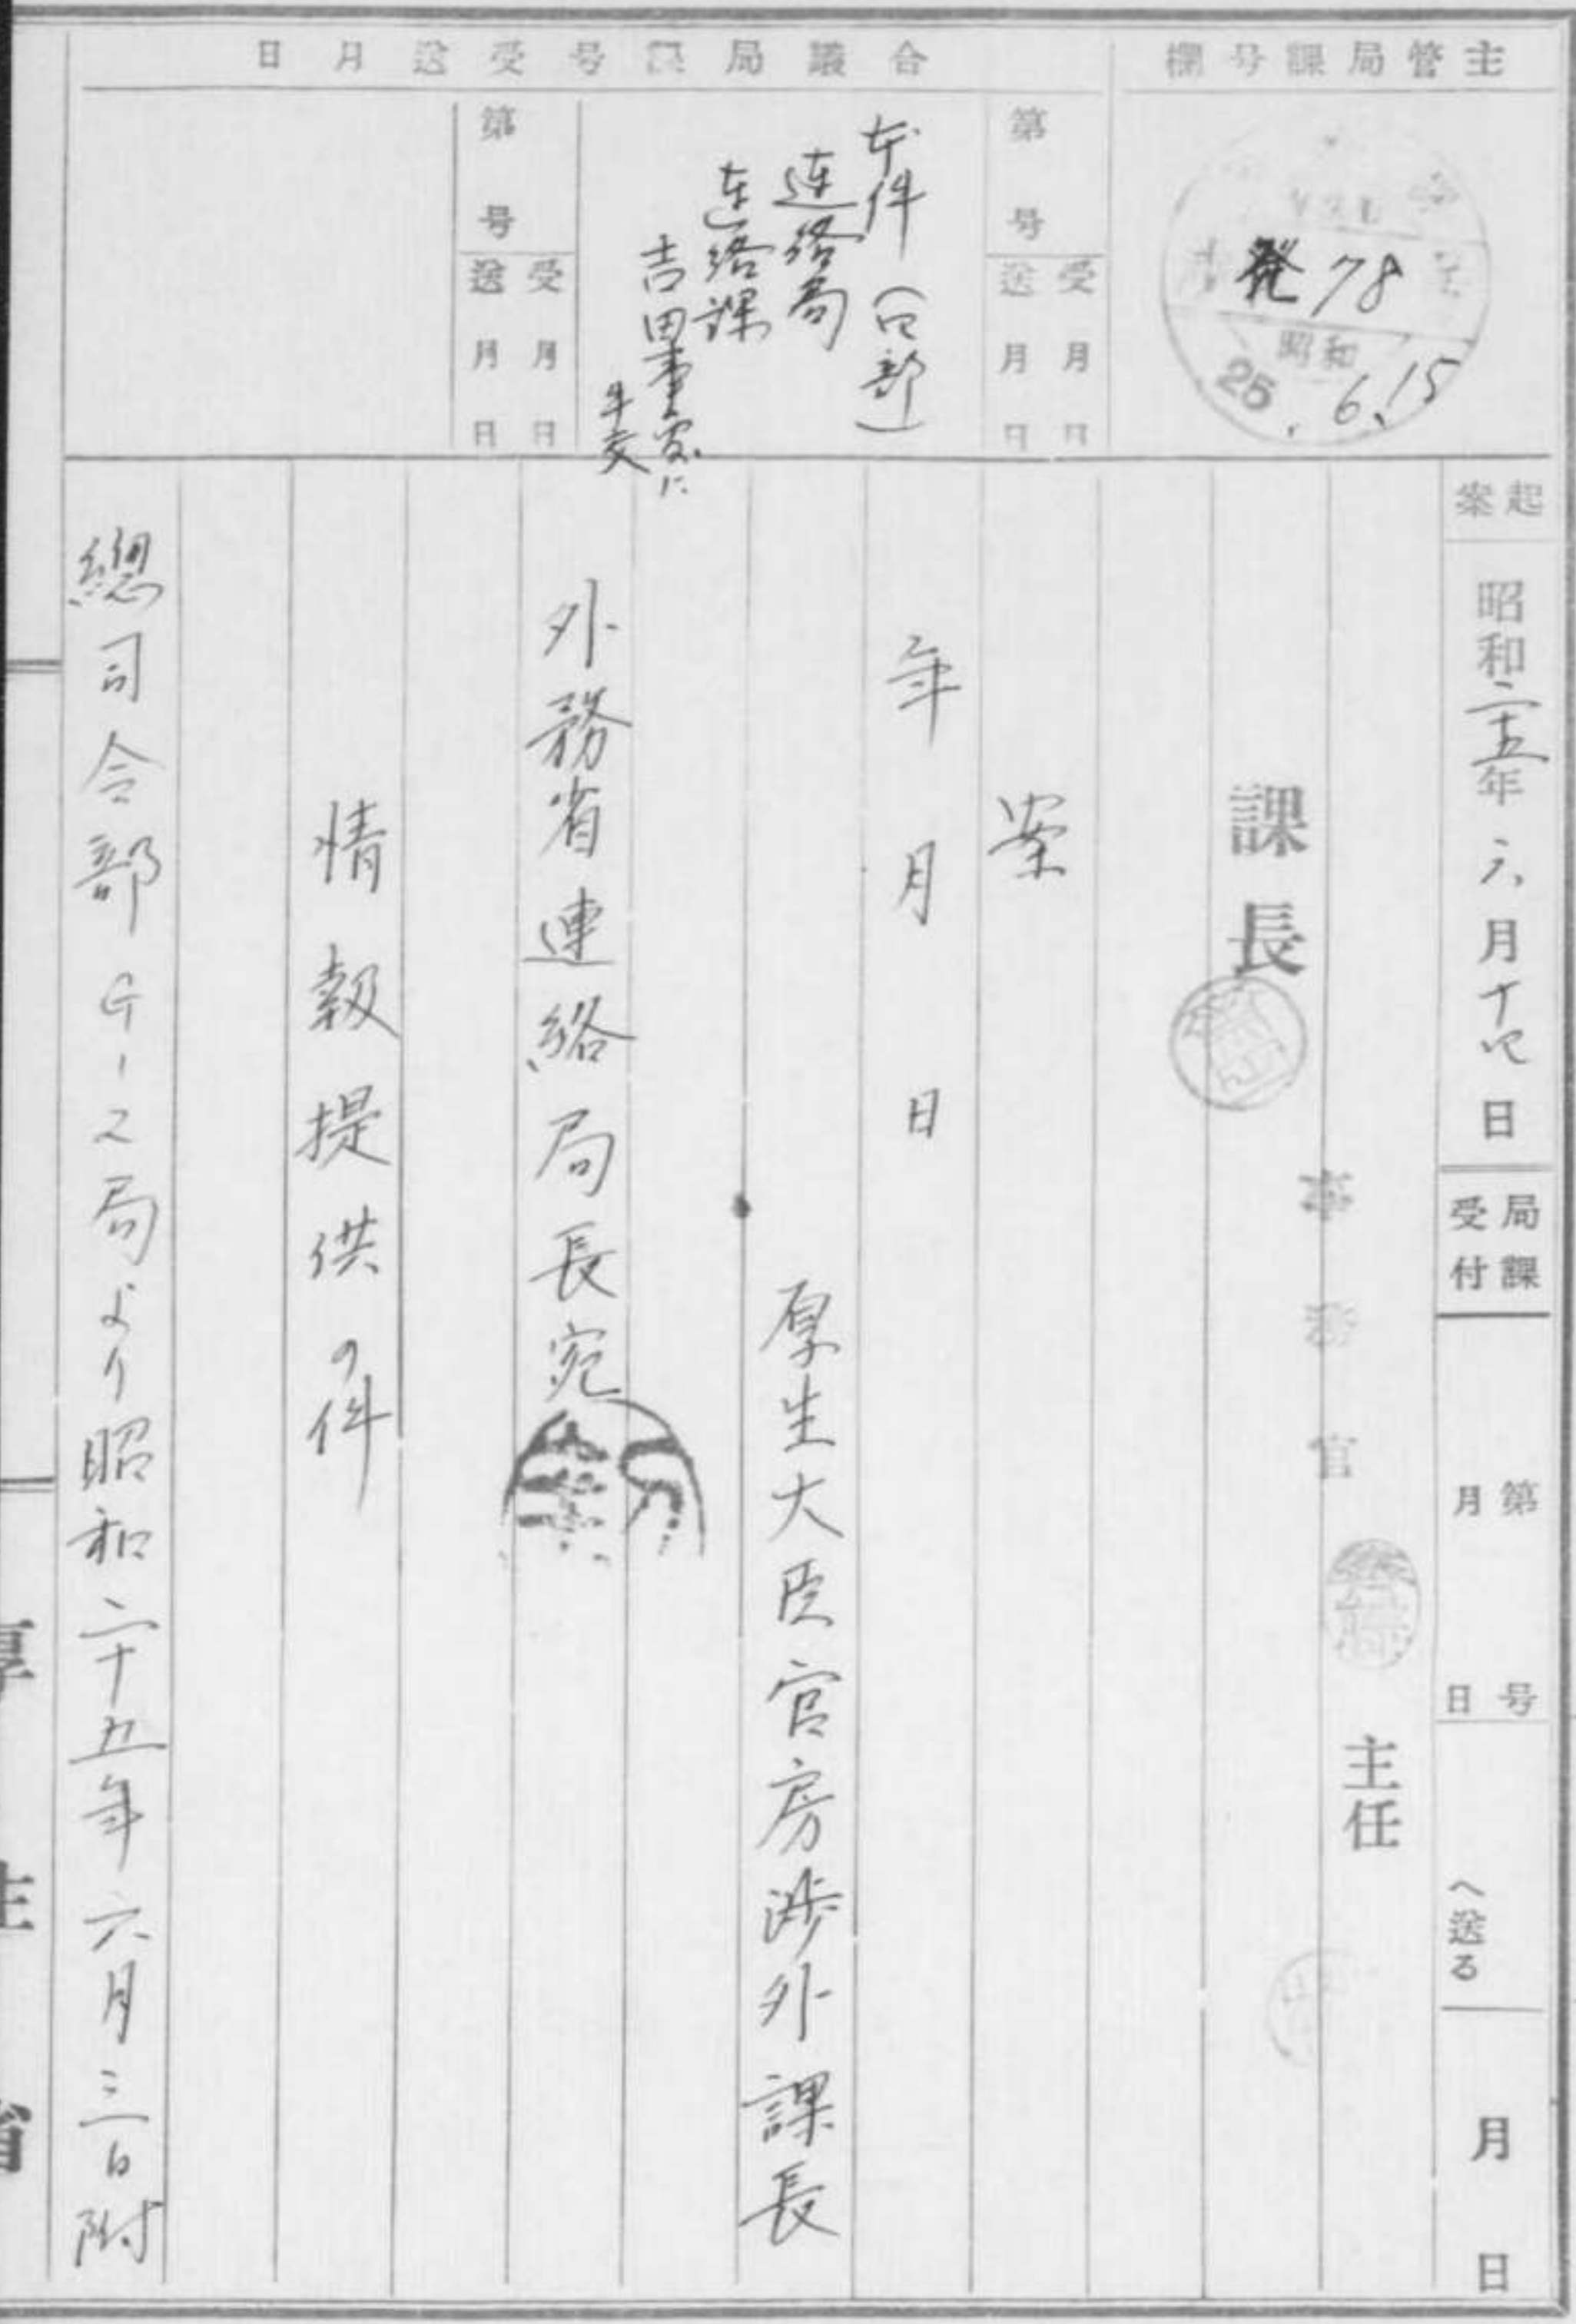 主管局課号欄
発78
昭和
25.6.15
合議局課号受送月日
第 号
受 月 日
送 月 日
本件(四部)
連絡局
連絡課
吉田事務官に
手交
第 号
受 月 日
送 月 日
起案
昭和二十五年六月十四日
局課受付
第 号
月 日
へ送る
月 日
主任
事務官
課長
案
年 月 日
厚生大臣官房渉外課長
外務省連絡局長宛
情報提供の件
總司令部G-2局より昭和二十五年六月三日附
厚生省